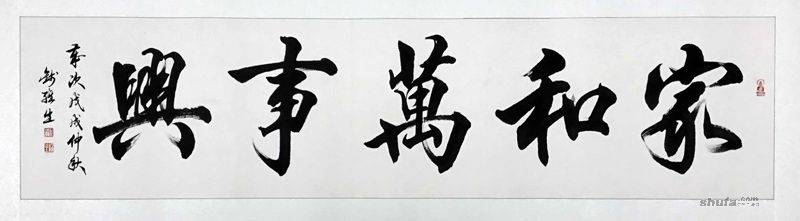 家和萬事興
歲次戊戌仲秋
shufa.com